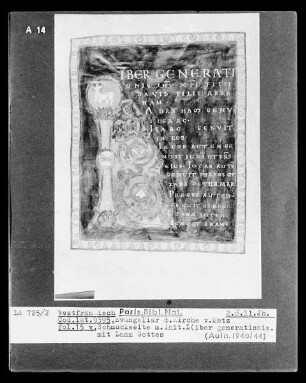 A 14
IBER GENERATI
ONIS IHV XPI FILII
DAVID FILII ABRA
HAM
ABRAHAM GENVIT
ISAAC
ISAAC GENVIT
IACOB
IACOB AUTEM GE
NUIT IUDAM ET FRS
EIUS IUDAS AUTE
GENUIT PHARES ET
ZARA DE THAMAR
PHARES AUTEM
GENUIT ESROM
ESROM AUTEM
GENUIT ARAM
La 725/2 Westfränkisch Paris, Bibl. Nat. 2.H.11.Jh.
Cod.lat.9393, Evangeliar d.Kirche v.Metz
fol.15 v, Schmuckseite m.Init.L(iber generationis)
mit Lamm Gottes (Aufn.1940/44)